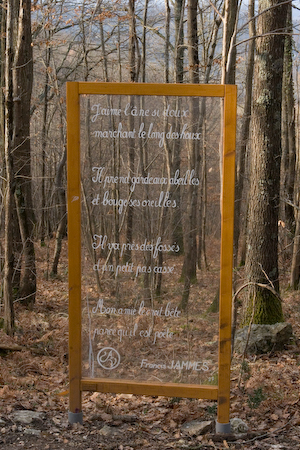 J'aime l'âne si doux
marchant le long des houx.
Il prend garde aux abeilles
et bouge ses oreilles
Il va près des fossés
d'un petit pas cassé.
Mon amie le croit bête
parce qu'il est poète
Francis JAMMES